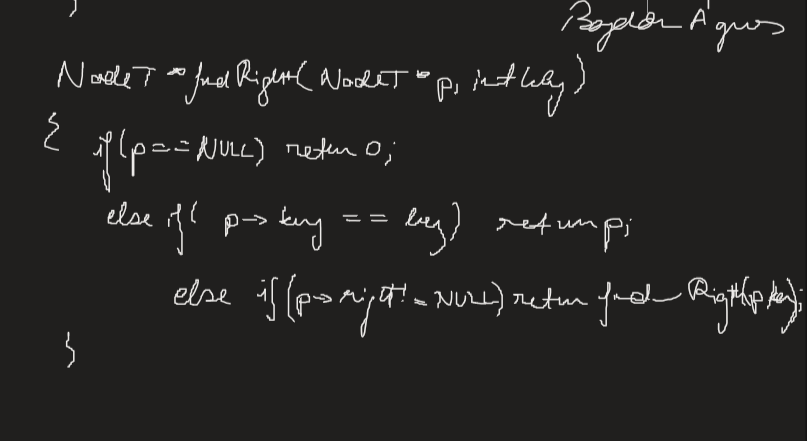 }
Bogdan Agnos
NodeT *findRight(NodeT *p, int key)
{ if(p==NULL) return 0;
else if( p→key == key) return p;
else if(p→right!=NULL) return find_Right(p key);
}